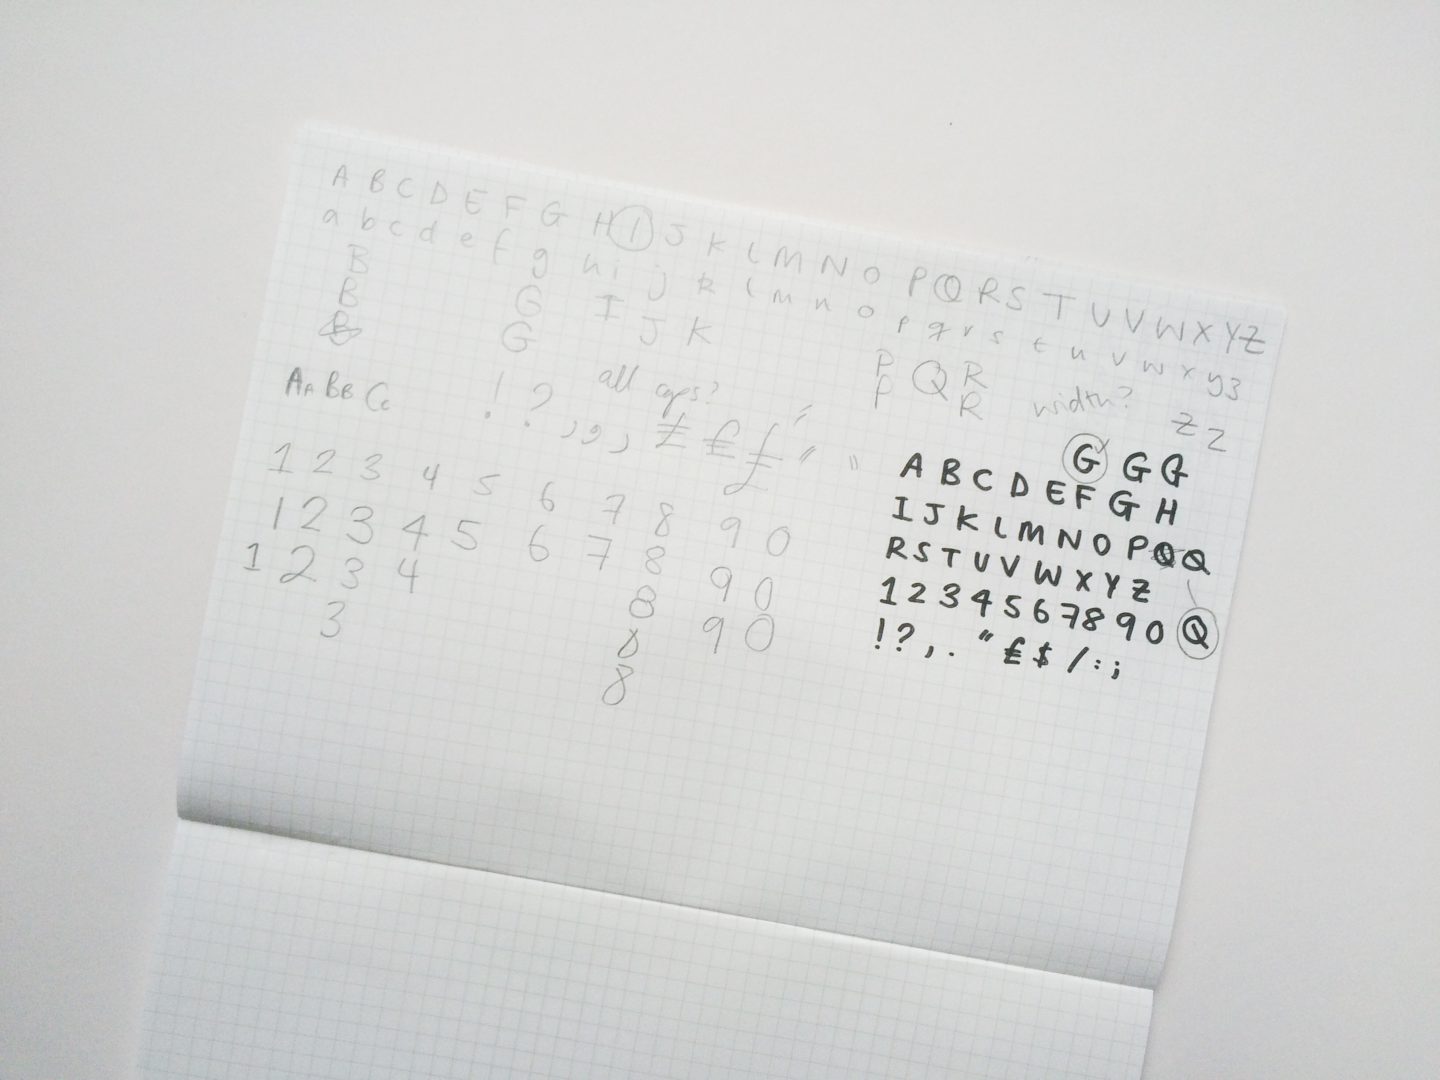 A B C D E F G H I J K L M N O P Q R S T U V W X Y Z
a b c d e f g h i j k l m n o p q r s t u v w x y z
B G I J K P Q R z z
B G P R
B
AA BB Cc ! ? , , , all caps? £ £ £ " " " width?
1 2 3 4 5 6 7 8 9 0
1 2 3 4 5 6 7 8 9 0
1 2 3 4 8 9 0
3 8
8
G G G
A B C D E F G H
I J K L M N O P Q Q
R S T U V W X Y Z
1 2 3 4 5 6 7 8 9 0 Q
! ? , . " £ $ / : ;